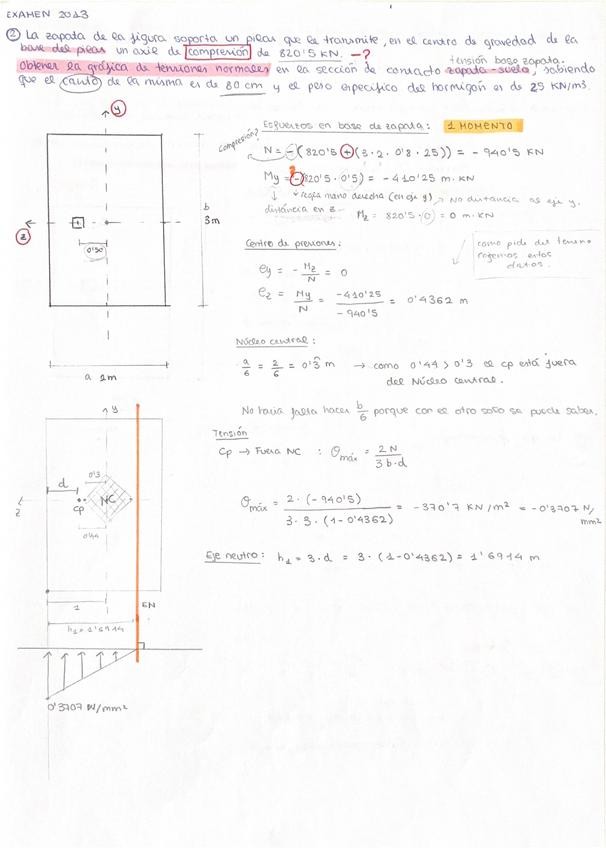 EXAMEN 2013
② La zapata de la figura soporta un pilar que le transmite, en el centro de gravedad de la
base del pilar un axil de compresión de 820'5 KN. -?
tensión base zapata.
Obtener la gráfica de tensiones normales en la sección de contacto zapata-suelo, sabiendo
que el canto de la misma es de 80 cm y el peso específico del hormigón es de 25 KN/m3.
y
z
0'50
b
3m
a 2m
Esfuerzos en base de zapata: 1 MOMENTO
compresión?
N = -(820'5 + (3·2·0'8·25)) = -940'5 KN
My = -(820'5·0'5) = -410'25 m·KN
regla mano derecha (en eje y) No distancia as eje y.
distancia en z Mz = 820'5·0 = 0 m·KN
Centro de presiones:
como pide del terreno
cogemos estos
datos.
ey = - Mz/N = 0
ez = My/N = -410'25/-940'5 = 0'4362 m
Núcleo central:
a/6 = 2/6 = 0'3 m → como 0'44 > 0'3 el cp está fuera
del Núcleo central.
No haría falta hacer b/6 porque con el otro solo se puede saber.
Tensión
Cp → Fuera NC : σmáx = 2N/3b·d
σmáx = 2·(-940'5)/3·3·(1-0'4362) = -370'7 KN/m² = -0'3707 N/mm2
Eje neutro: h1 = 3·d = 3·(1-0'4362) = 1'6914 m
y
z
0'3
d
NC
CP
0'44
1
EN
h1 = 1'6914
0'3707 N/mm²